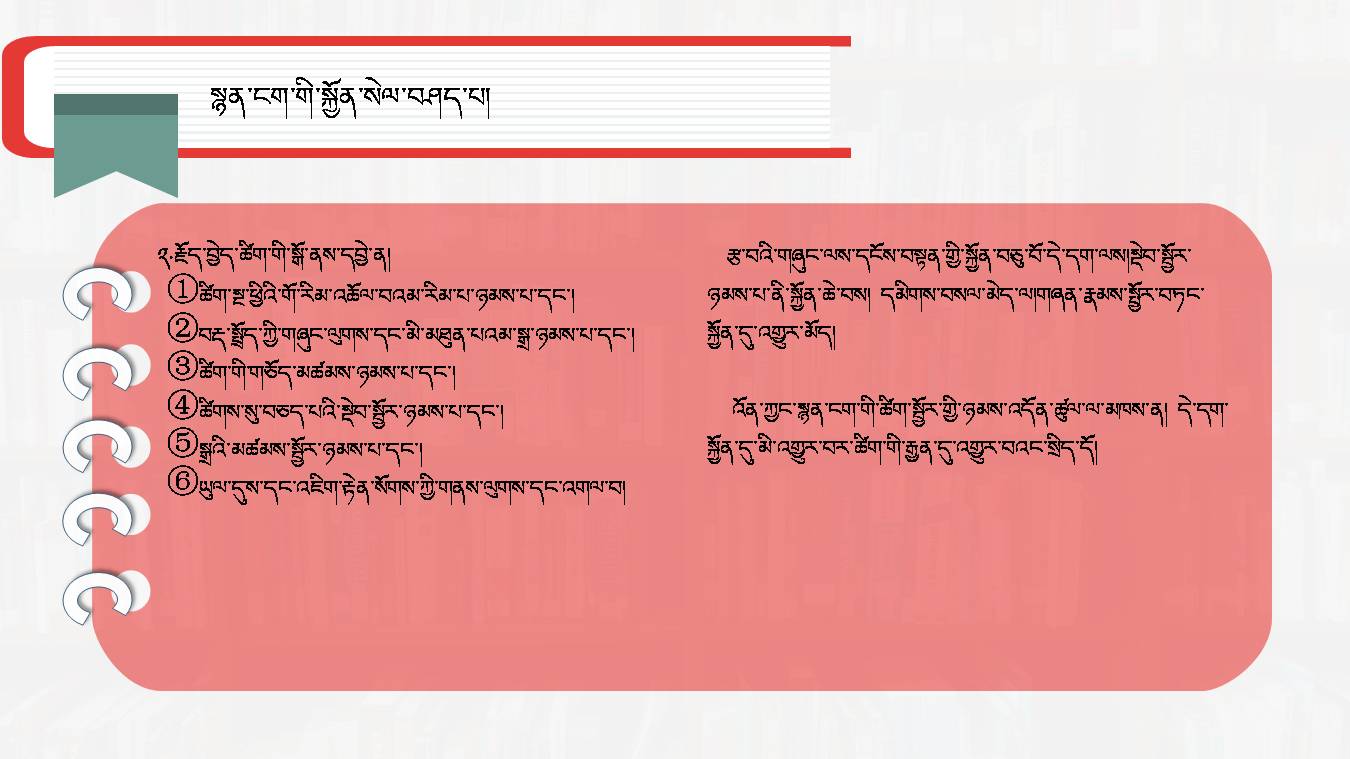 སྙན་ངག་གི་སྐྱོན་སེལ་བཤད་པ།
༢.རྗོད་བྱེད་ཚིག་གི་སྒོ་ནས་དབྱེ་ན།
①ཚིག་སྔ་ཕྱིའི་གོ་རིམ་འཆོལ་བའམ་རིམ་པ་ཉམས་པ་དང་།
②བརྡ་སྤྲོད་ཀྱི་གཞུང་ལུགས་དང་མི་མཐུན་པའམ་སྒྲ་ཉམས་པ་དང་།
③ཚིག་གི་གཅོད་མཚམས་ཉམས་པ་དང་།
④ཚིགས་སུ་བཅད་པའི་སྡེབ་སྦྱོར་ཉམས་པ་དང་།
⑤སྒྲའི་མཚམས་སྦྱོར་ཉམས་པ་དང་།
⑥ཡུལ་དུས་དང་འཇིག་རྟེན་སོགས་ཀྱི་གནས་ལུགས་དང་འགལ་བ།
རྩ་བའི་གཞུང་ལས་དངོས་བསྟན་གྱི་སྐྱོན་བཅུ་པོ་དེ་དག་ལས།སྡེབ་སྦྱོར་
ཉམས་པ་ནི་སྐྱོན་ཆེ་བས། དམིགས་བསལ་མེད་ལ།གཞན་རྣམས་སྤྱིར་བཏང་
སྐྱོན་དུ་འགྱུར་མོད།
འོན་ཀྱང་སྙན་ངག་གི་ཚིག་སྦྱོར་གྱི་ཉམས་འདོན་ཚུལ་ལ་མཁས་ན། དེ་དག་
སྐྱོན་དུ་མི་འགྱུར་བར་ཚིག་གི་རྒྱན་དུ་འགྱུར་བའང་སྲིད་དོ།